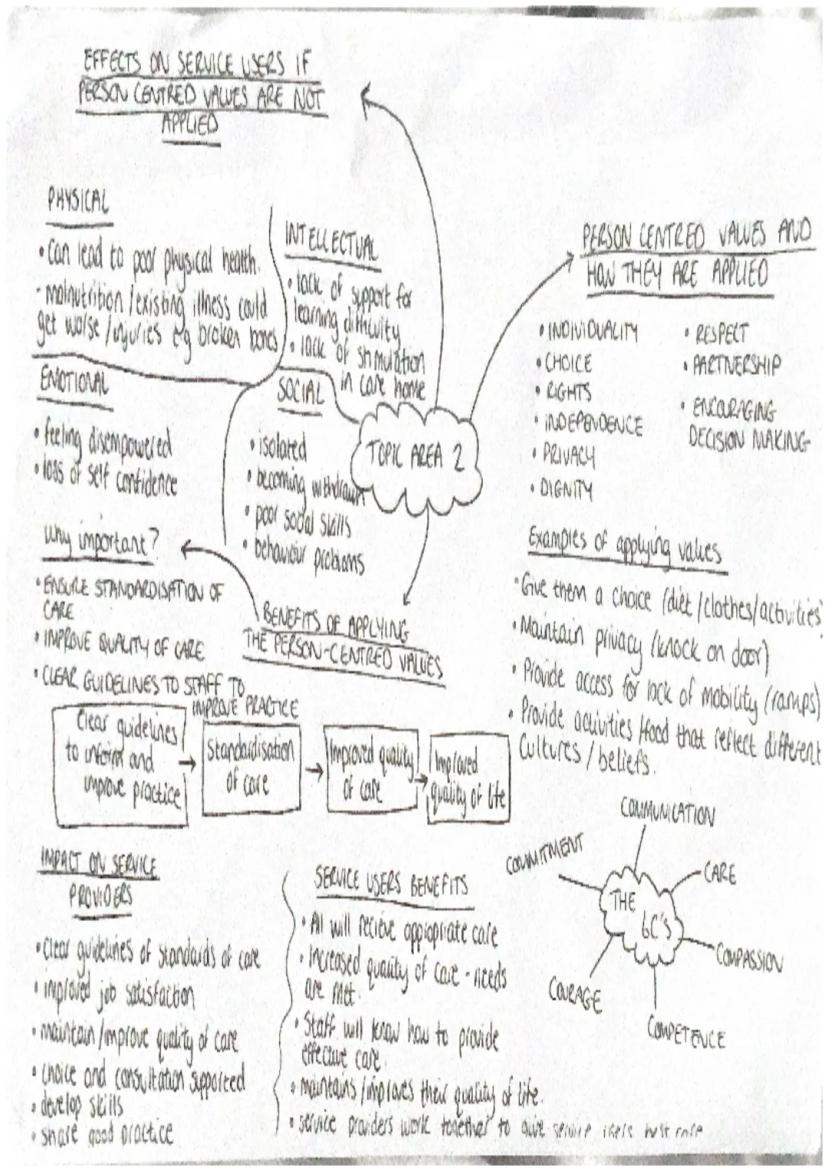 EFFECTS ON SERVICE USERS IF
PERSON CENTRED VALUES ARE NOT
APPLIED
PHYSICAL
• Can lead to poor physical health.
- malnutrition/existing illness could
get worse/injuries eg broken bones
INTELLECTUAL
• lack of support for
learning difficulty
• lack of stimulation
in care home
EMOTIONAL
• feeling disempowered
• loss of self confidence
SOCIAL
• isolated
• becoming withdrawn
• poor social skills
• behaviour problems
TOPIC AREA 2
PERSON CENTRED VALUES AND
HOW THEY ARE APPLIED
• INDIVIDUALITY
• CHOICE
• RIGHTS
• INDEPENDENCE
• PRIVACY
• DIGNITY
• RESPECT
• PARTNERSHIP
• ENCOURAGING
DECISION MAKING
Examples of applying values
• Give them a choice (diet/clothes/activities)
• Maintain privacy (knock on door)
• Provide access for lack of mobility (ramps)
• Provide activities/food that reflect different
cultures/beliefs.
why important?
• ENSURE STANDARDISATION OF
CARE
• IMPROVE QUALITY OF CARE
• CLEAR GUIDELINES TO STAFF TO
IMPROVE PRACTICE
BENEFITS OF APPLYING
THE PERSON-CENTRED VALUES
Clear guidelines
to inform and
improve practice
Standardisation
of care
Improved quality
of care
Improved
quality of life
IMPACT ON SERVICE
PROVIDERS
• clear guidelines of standards of care
• improved job satisfaction
• maintain/improve quality of care
• choice and consultation supported
• develop skills
• share good practice
SERVICE USERS BENEFITS
• All will recieve appropriate care
• Increased quality of care - needs
are met.
• Staff will know how to provide
effective care.
• maintains/improves their quality of life.
• service providers work together to give service users best care
THE 6C'S
COMMUNICATION
CARE
COMPASSION
COMPETENCE
COURAGE
COMMITMENT